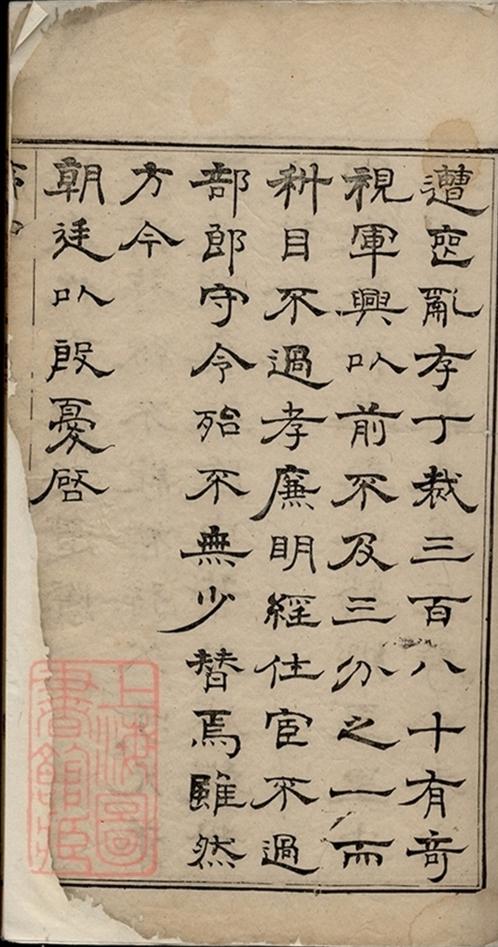 遭喪亂存丁裁三百八十有奇
視軍興以前不及三分之一而
科目不過孝廉明經仕宦不過
部郎守令殆不無少替焉雖然
方今
朝廷以殷憂啓
上海圖
書館藏